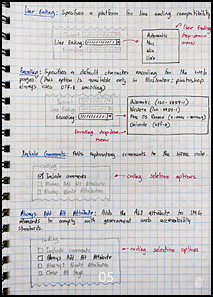 Line Ending: Specifies a platform for line ending compatibility
Line Ending
Line Ending drop-down menu
Automatic
Mac
Win
Unix
Encoding: Specifies a default character encoding for the web pages (this option is available only in Illustrator; photoshop always uses UTF-8 encoding)
Encoding
Automatic (ISO-8859-1)
Win (ISO-8859-1)
Mac OS Roman
Unicode (UTF-8)
Encoding drop-down menu
Include Comments: Adds explanatory comments to the HTML code
Include comments
coding selection options
Always Add Alt Attribute: Adds the ALT attribute to IMG elements to comply with government web accessibility standards.
coding
Include comments
Always Add Alt Attribute
coding selection options
05